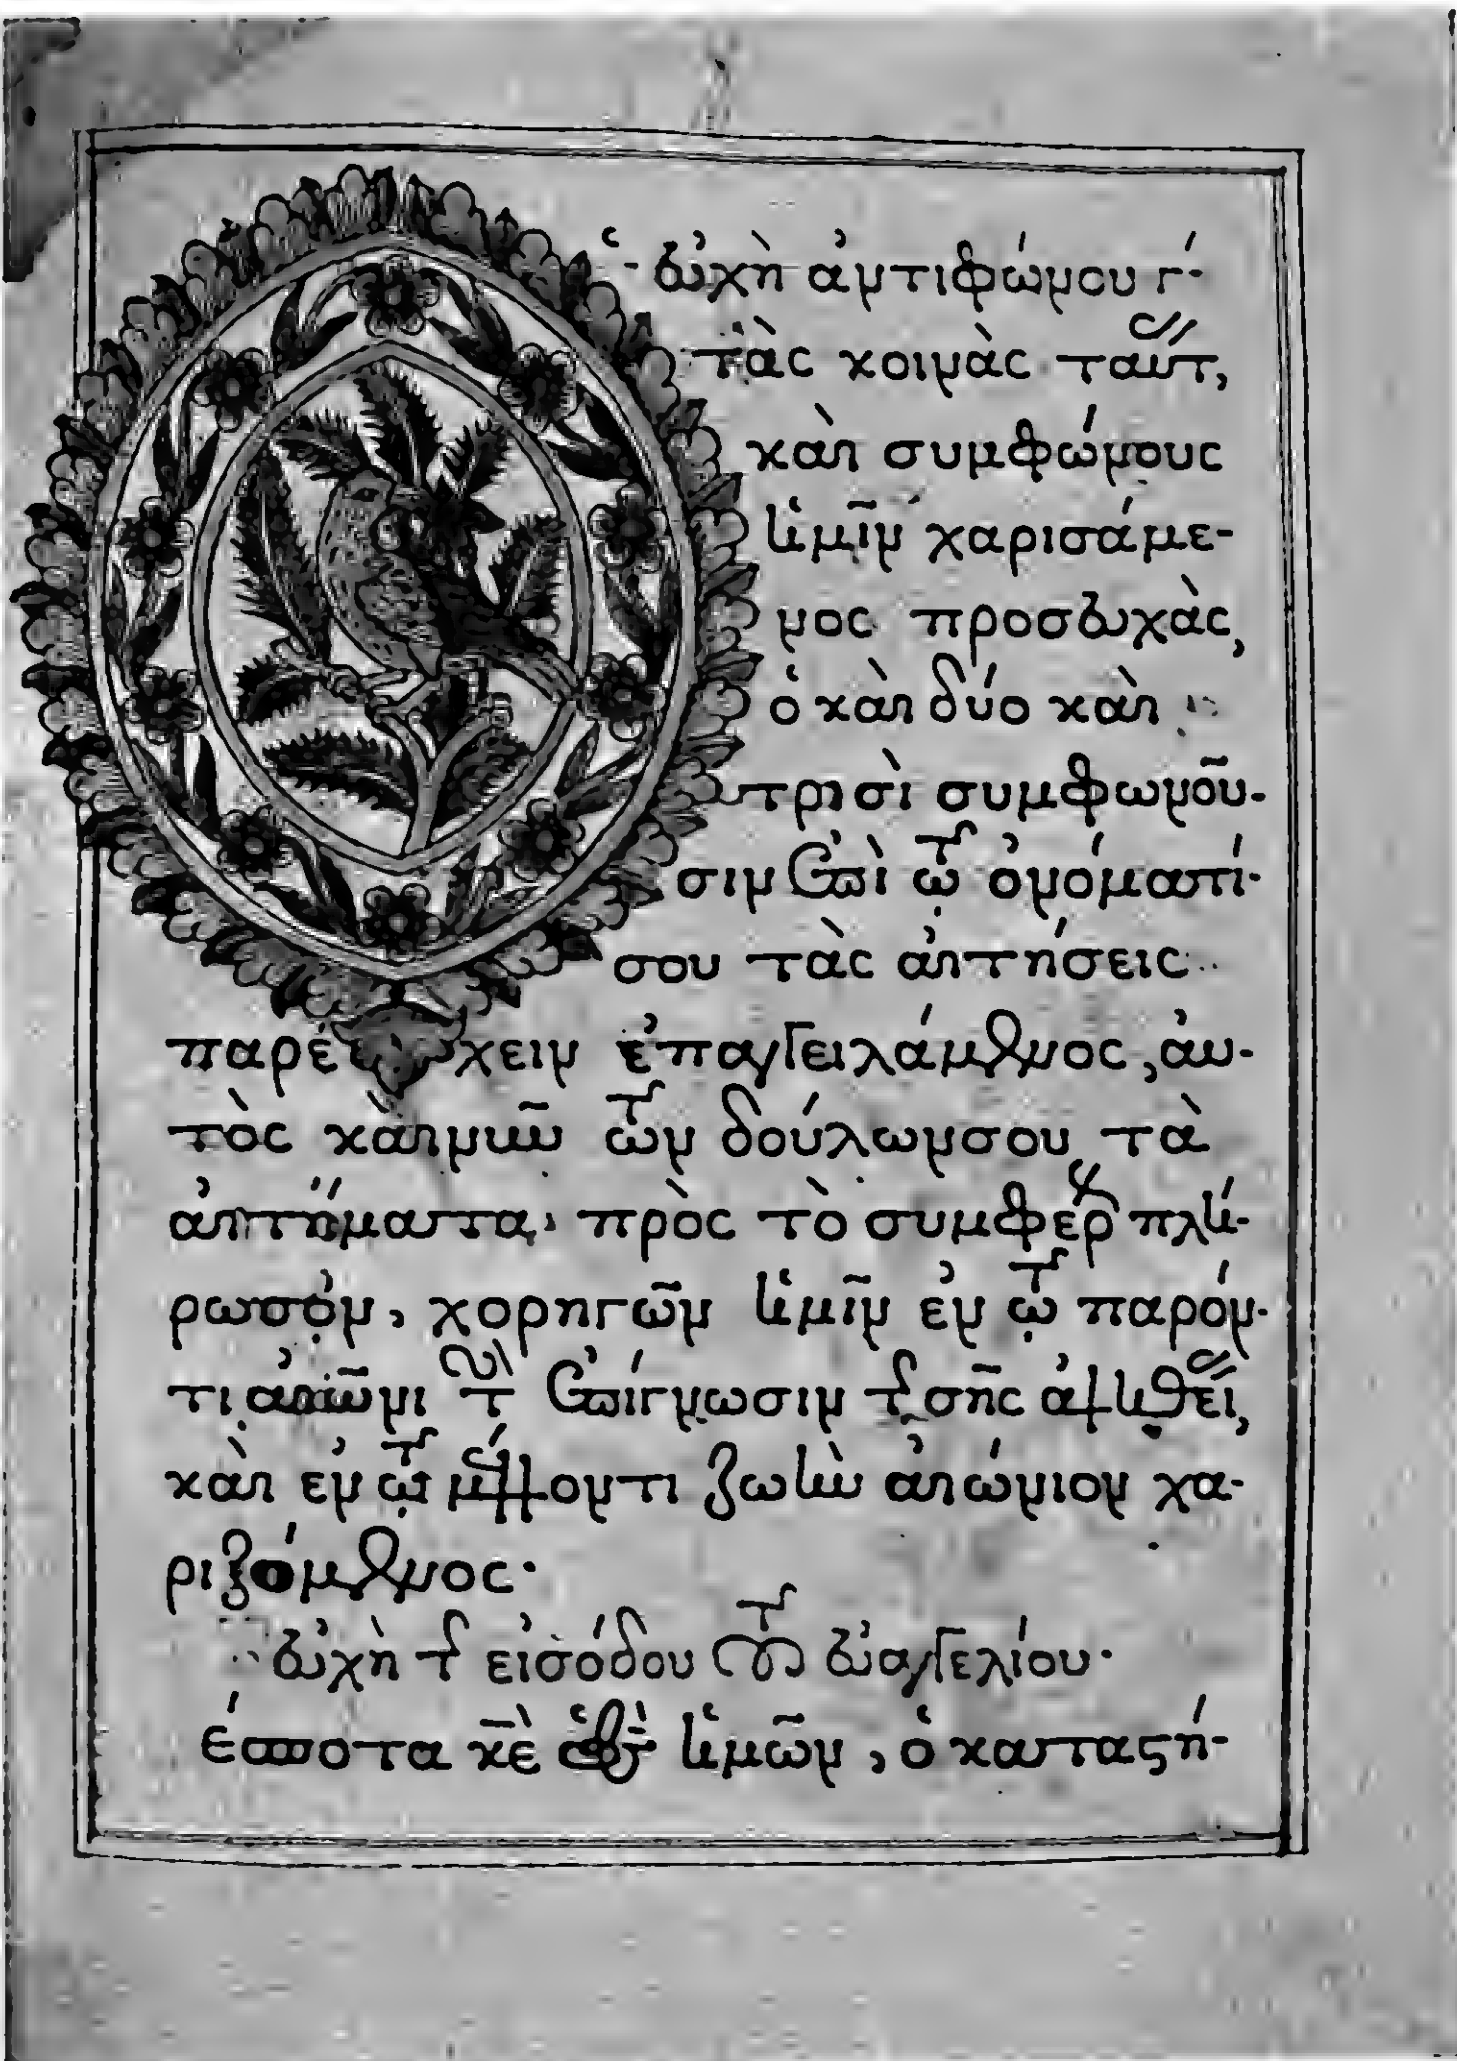 εὐχὴ ἀντιφώνου γ΄
τὰς κοινὰς ταύτ,
καὶ συμφώνους
ἡμῖν χαρισάμε-
νος προσευχὰς,
ὁ καὶ δύο καὶ
τρισὶ συμφωνοῦ-
σιν ἐπὶ τῷ ὀνόματί
σου τὰς αἰτήσεις
παρέχειν ἐπαγγειλάμενος, αὐ-
τὸς καὶ νῦν τῶν δούλων σου τὰ
αἰτήματα πρὸς τὸ συμφέρ πλή-
ρωσον, χορηγῶν ἡμῖν ἐν τῷ παρόν-
τι αἰῶνι τὴν ἐπίγνωσιν τῆς σῆς ἀληθεί,
καὶ ἐν τῷ μέλλοντι ζωὴν αἰώνιον χα-
ριζόμενος·
εὐχὴ τῆς εἰσόδου τοῦ εὐαγγελίου·
έσποτα κε ὁ θς ἡμῶν, ὁ καταστή-